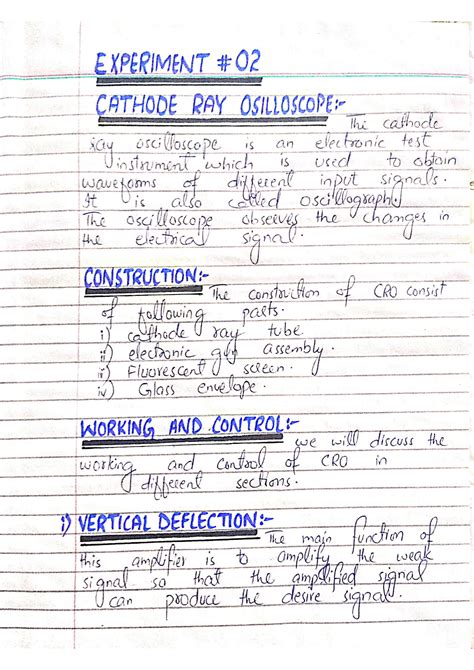 EXPERIMENT # 02
CATHODE RAY OSILLOSCOPE:-
The cathode
ray oscilloscope is an electronic test
instrument which is used to obtain
waveforms of different input signals.
It is also called oscillograph.
The oscilloscope observes the changes in
the electrical signal.
CONSTRUCTION:-
The construction of CRO consist
of following parts.
i) cathode ray tube
ii) electronic gun assembly.
iii) Fluorescent screen.
iv) Glass envelope.
WORKING AND CONTROL:-
we will discuss the
working and control of CRO in
different sections.
i) VERTICAL DEFLECTION:-
The main function of
this amplifier is to amplify the weak
signal so that the amplified signal
can produce the desire signal.